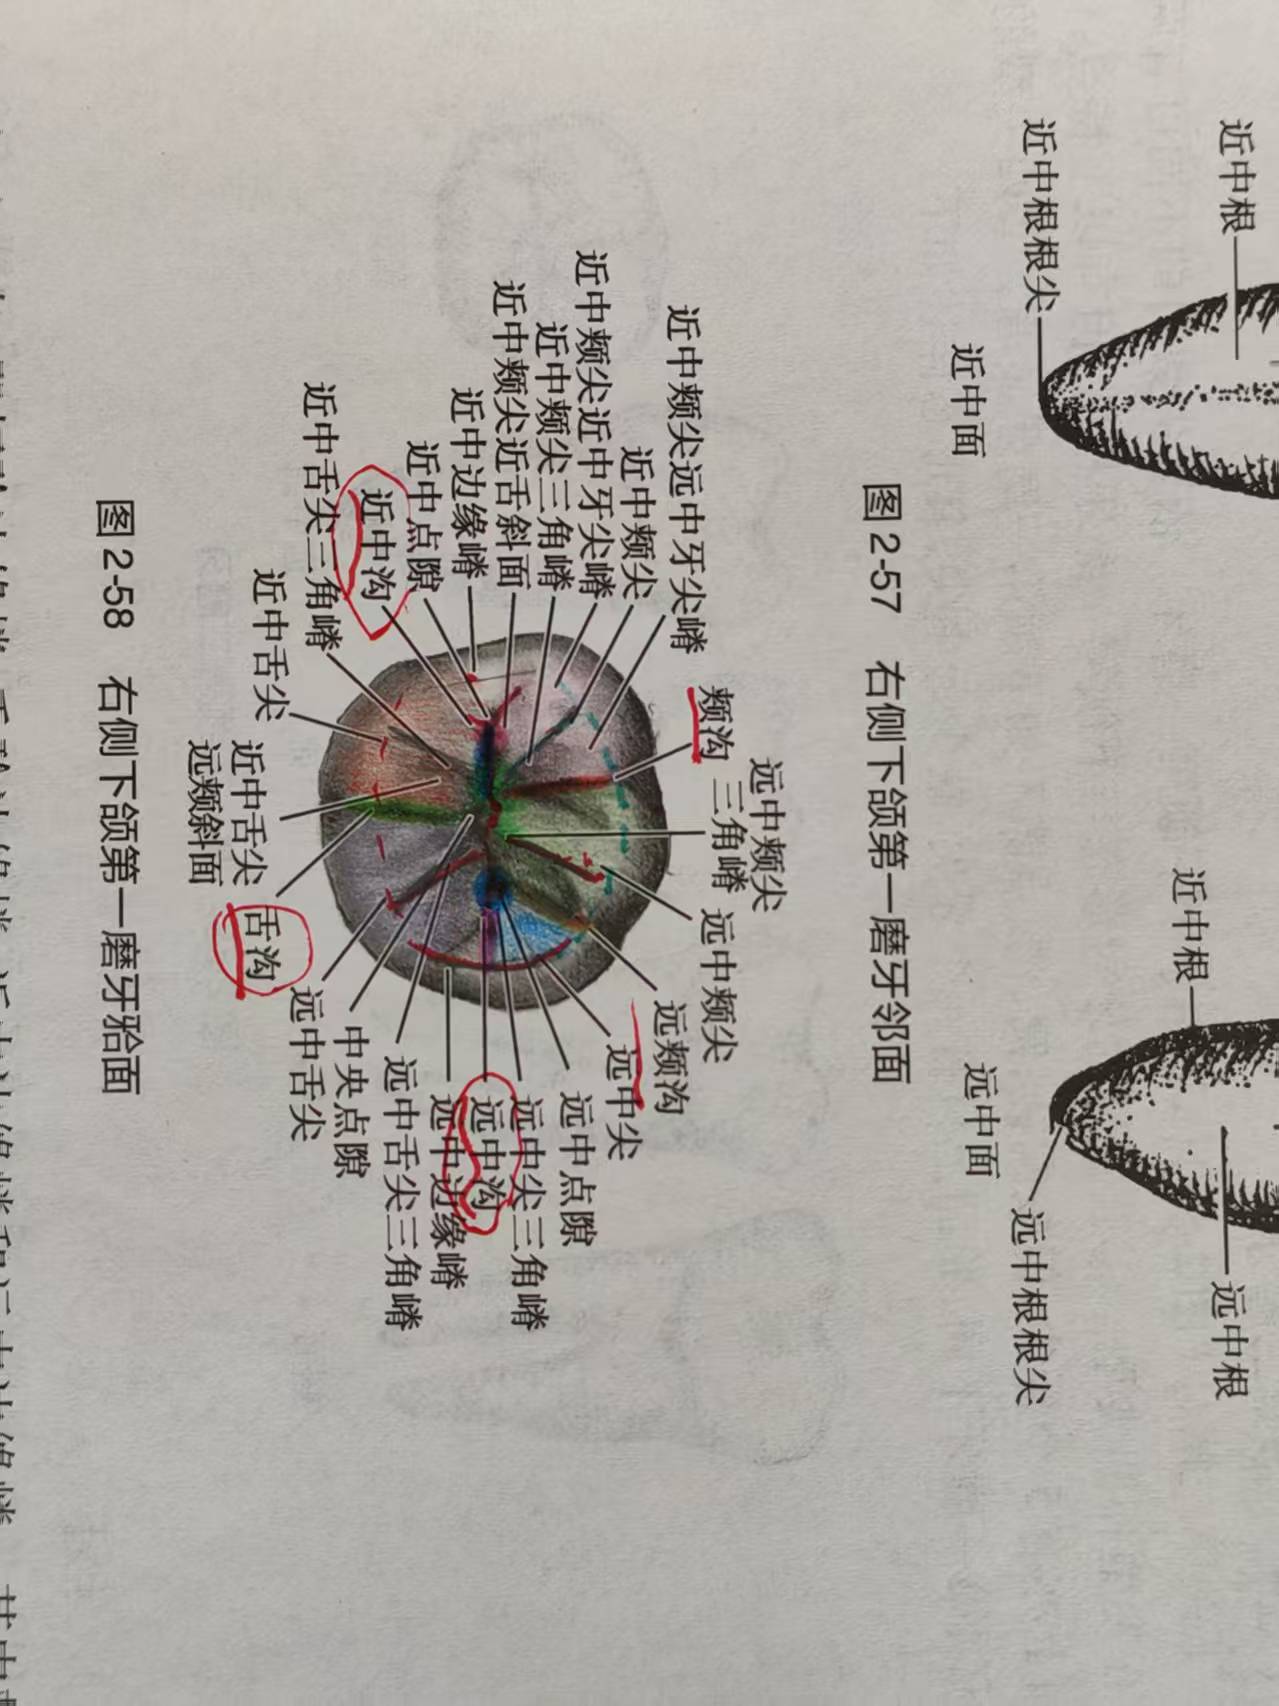 近中根
近中根根尖
近中面
近中根
远中面
远中根
远中根根尖
图 2-57 右侧下颌第一磨牙邻面
近中颊尖远中牙尖嵴
近中颊尖
近中颊尖近中牙尖嵴
近中颊尖三角嵴
近中颊尖近舌斜面
近中边缘嵴
近中点隙
近中沟
近中舌尖三角嵴
近中舌尖
近中舌尖
远颊斜面
舌沟
颊沟
远中颊尖
三角嵴
远中颊尖
远颊沟
远中尖
远中点隙
远中尖三角嵴
远中沟
远中边缘嵴
远中舌尖三角嵴
中央点隙
远中舌尖
图 2-58 右侧下颌第一磨牙𬌗面